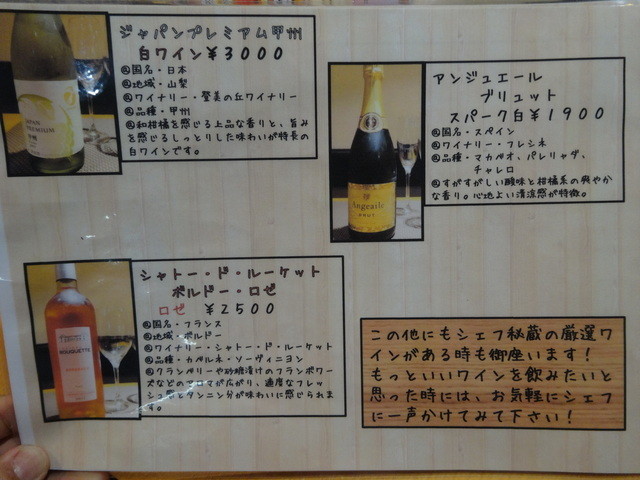 ジャパンプレミアム甲州
白ワイン￥3000
国名・日本
地域・山梨
ワイナリー・登美の丘ワイナリー
品種・甲州
和柑橘を感じる上品な香りと、旨み
を感じるしっとりした味わいが特長の
白ワインです。
アンジュエール
ブリュット
スパーク白￥1900
国名・スペイン
ワイナリー・フレシネ
品種・マカベオ、パレリャダ、
チャレロ
すがすがしい酸味と柑橘系の爽やか
な香り。心地よい清涼感が特徴。
Angeaile
BRUT
シャトー・ド・ルーケット
ボルドー・ロゼ
ロゼ ￥2500
国名・フランス
地域・ボルドー
ワイナリー・シャトー・ド・ルーケット
品種・カベルネ・ソーヴィニヨン
クランベリーや砂糖漬けのフランボワー
ズなどのアロマが広がり、適度なフレッ
シュ感とタンニン分が味わいに感じられま
す。
ROUQUETTE
この他にもシェフ秘蔵の厳選ワ
インがある時も御座います！
もっといいワインを飲みたいと
思った時には、お気軽にシェフ
に一声かけてみて下さい！